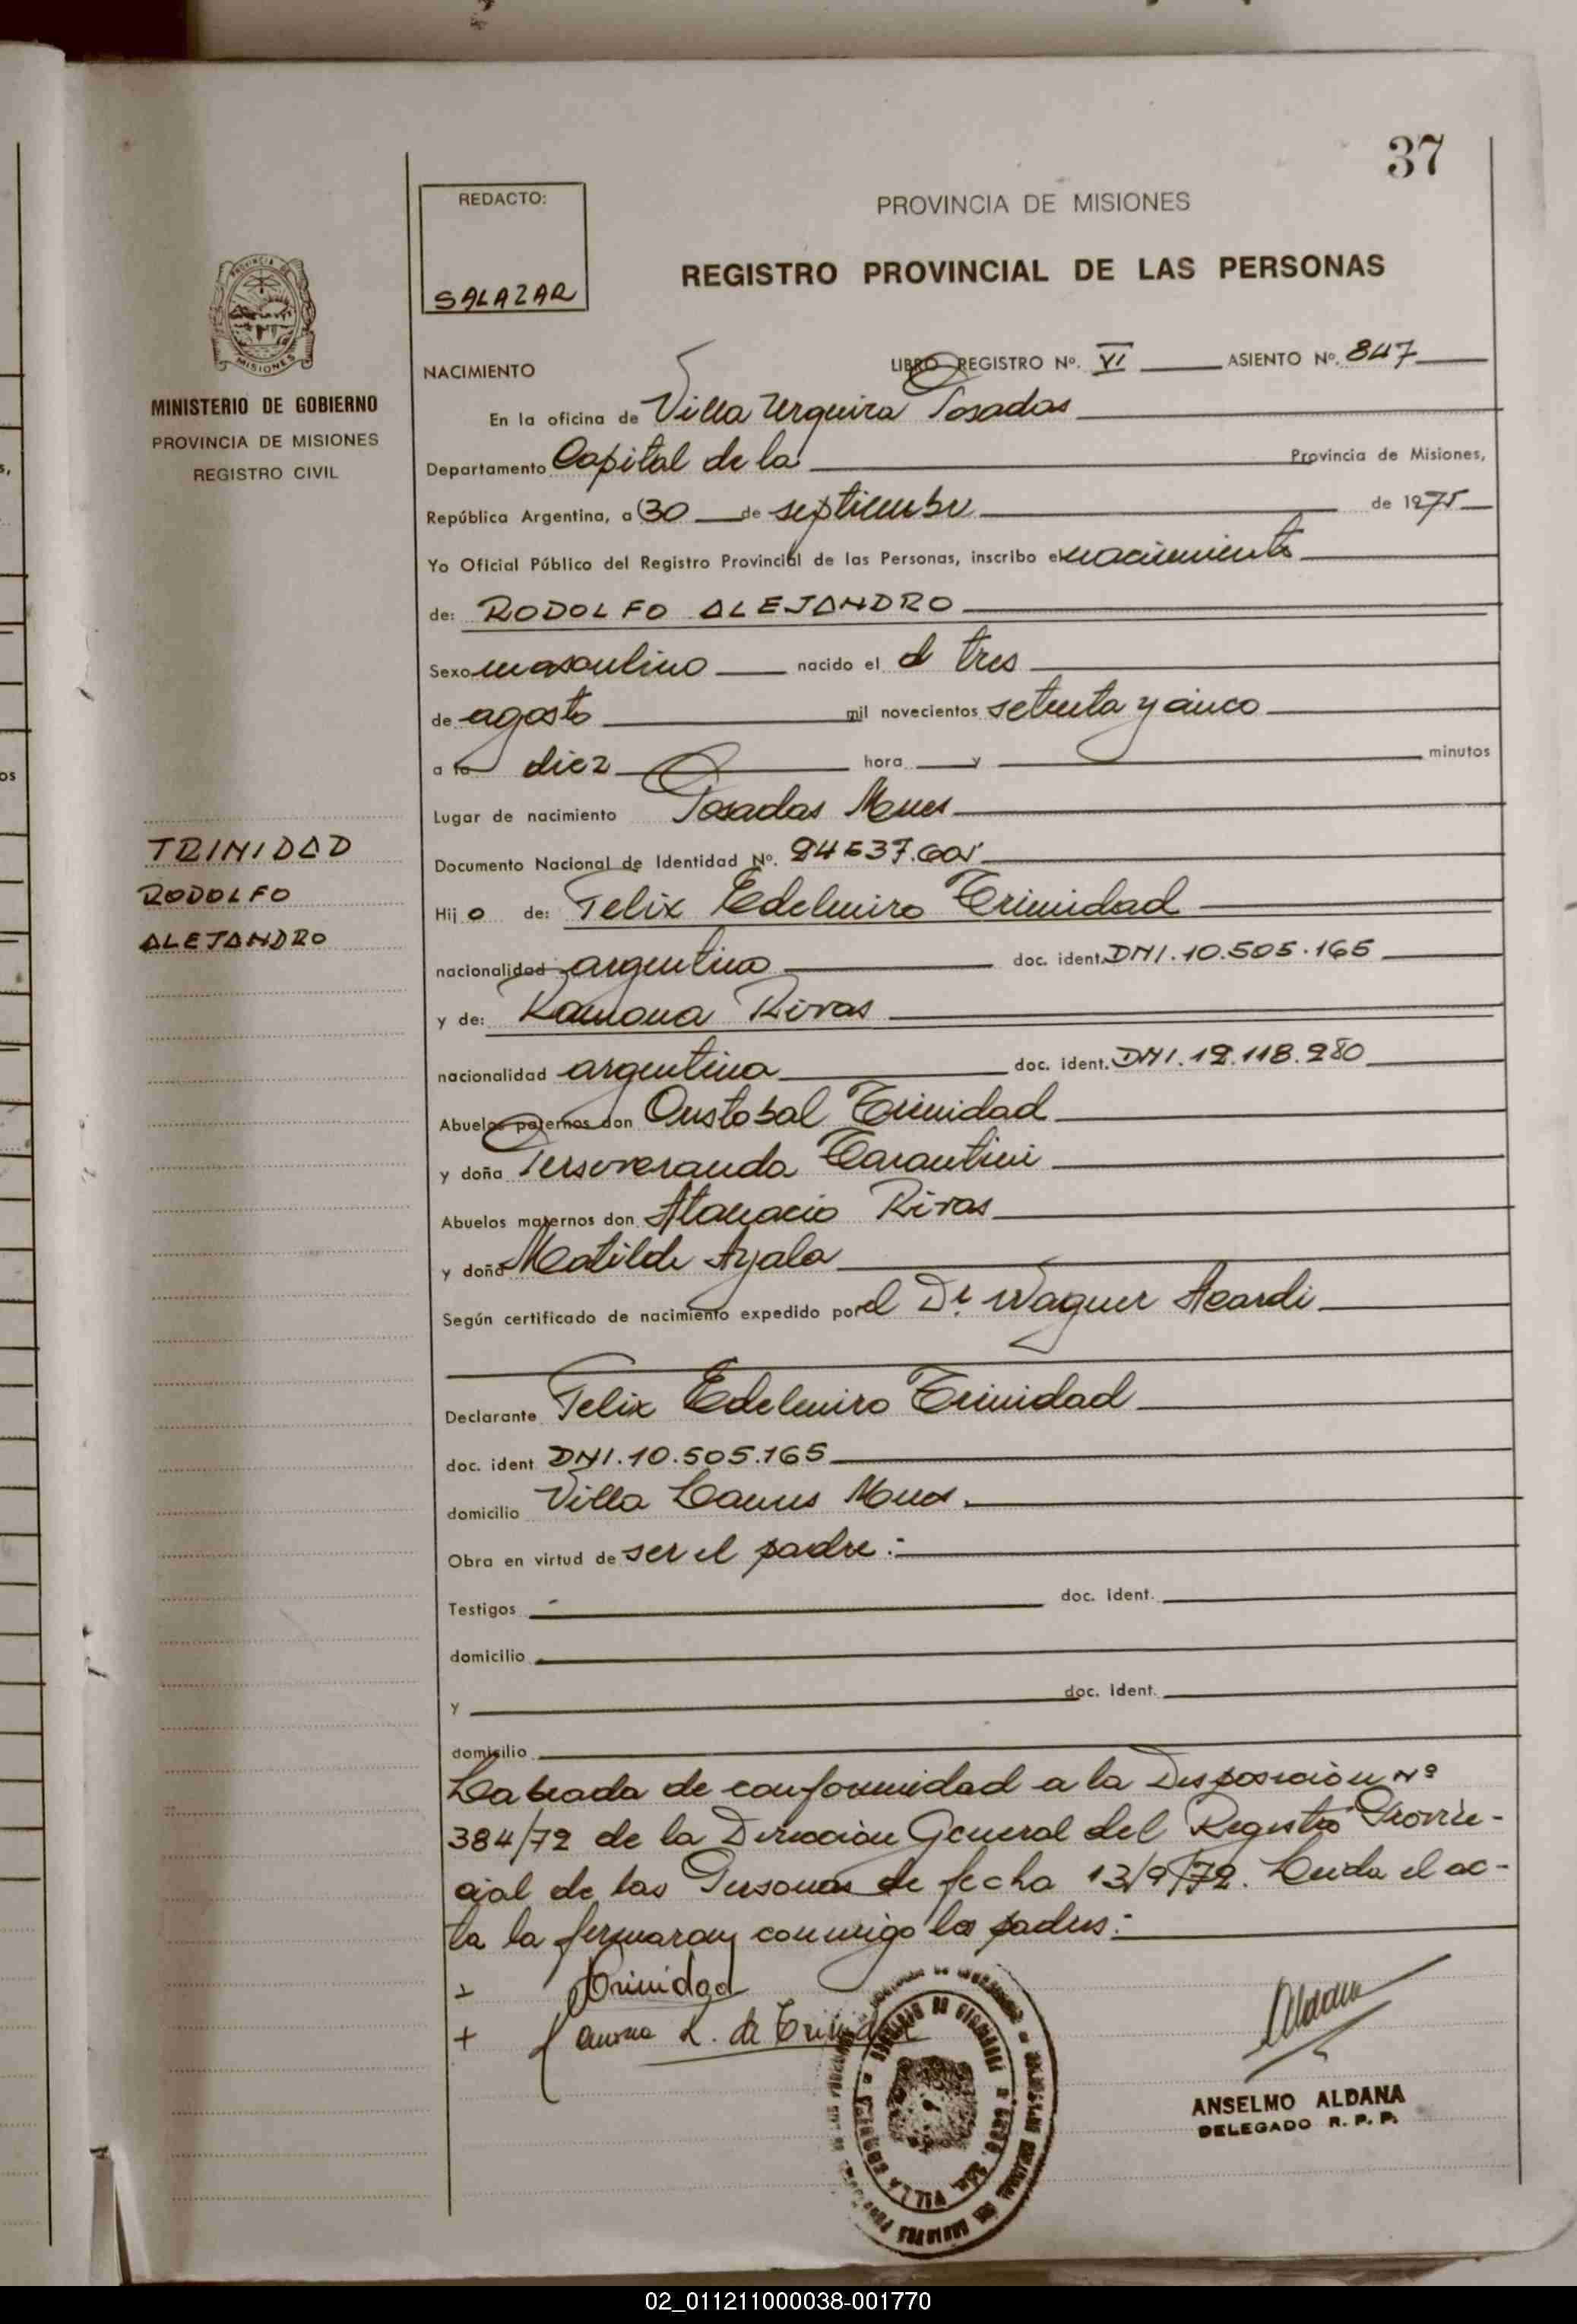 37
REDACTO:
SALAZAR
PROVINCIA DE MISIONES
REGISTRO PROVINCIAL DE LAS PERSONAS
PROVINCIA DE
MISIONES
MINISTERIO DE GOBIERNO
PROVINCIA DE MISIONES
REGISTRO CIVIL
NACIMIENTO LIBRO REGISTRO Nº. VI ASIENTO Nº. 847
En la oficina de Villa Urquiza Posadas
Departamento Capital de la Provincia de Misiones,
República Argentina, a 30 de septiembre de 1975
Yo Oficial Público del Registro Provincial de las Personas, inscribo el nacimiento
de: RODOLFO ALEJANDRO
Sexo masculino nacido el d tres
de agosto mil novecientos setenta y cinco
a la diez hora y minutos
Lugar de nacimiento Posadas Mnes
TRINIDAD
RODOLFO
ALEJANDRO
Documento Nacional de Identidad Nº. 24537.601
Hij o de: Felix Edelmiro Trinidad
nacionalidad argentina doc. ident. DNI. 10.505.165
y de: Ramona Rivas
nacionalidad argentina doc. ident. DNI. 12.118.280
Abuelos paternos don Cristobal Trinidad
y doña Perseveranda Tarantini
Abuelos maternos don Atanacio Rivas
y doña Matilde Ayala
Según certificado de nacimiento expedido por el Dr. Wagner Acardi
Declarante Felix Edelmiro Trinidad
doc. ident DNI. 10.505.165
domicilio Villa Lanus Mnes.
Obra en virtud de ser el padre.-
Testigos - doc. ident.
domicilio
y doc. ident.
domicilio
Labrada de conformidad a la Disposición Nº
384/72 de la Dirección General del Registro Provin-
cial de las Personas de fecha 13/9/72. Leida el ac-
ta la firmaron conmigo los padres.-
+ Trinidad
+ Ramona R. de Trinidad
Aldana
ANSELMO ALDANA
DELEGADO R. P. P.
02_011211000038-001770